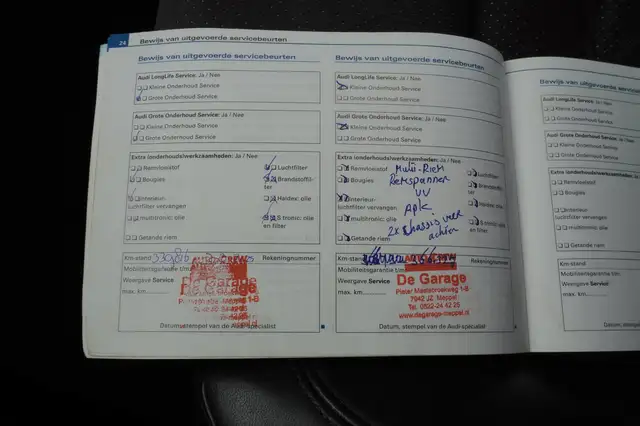 24
Bewijs van uitgevoerde servicebeurten
Bewijs van uitgevoerde servicebeurten
Audi LongLife Service: Ja / Nee
Kleine Onderhoud Service
Grote Onderhoud Service
Audi Grote Onderhoud Service: Ja / Nee
Kleine Onderhoud Service
Grote Onderhoud Service
Extra (onderhouds)werkzaamheden: Ja / Nee
Remvloeistof
Luchtfilter
Bougies
Brandstoffil-
ter
Interieur-
luchtfilter vervangen
Haldex: olie
multitronic: olie
S tronic: olie
en filter
Getande riem
Km-stand
Rekeningnummer
Mobiliteitsgarantie t/m
Weergave Service
max. km
De Garage
Datum, stempel van de Audi-specialist
Bewijs van uitgevoerde servicebeurten
Bewijs van uitgevoerde servicebeurten
Audi LongLife Service: Ja / Nee
Kleine Onderhoud Service
Grote Onderhoud Service
Audi Grote Onderhoud Service: Ja / Nee
Kleine Onderhoud Service
Grote Onderhoud Service
Extra (onderhouds)werkzaamheden: Ja / Nee
Remvloeistof
Luchtfilter
Bougies
Brandstoffil-
ter
Interieur-
luchtfilter vervangen
Haldex: olie
multitronic: olie
S tronic: olie
en filter
Getande riem
Multi-Riem
Riemspanner
VV
APK
2x chassis veer
achter
Km-stand
Rekeningnummer
Mobiliteitsgarantie t/m
Weergave Service
max. km
De Garage
7942 JZ Meppel
Tel. 0522-24 42 25
www.degarage-meppel.nl
Datum, stempel van de Audi-specialist
Bewijs van uitgevoerde
Audi LongLife Service: Ja / Nee
Kleine Onderhoud Service
Grote Onderhoud Service
Audi Grote Onderhoud Service:
Kleine Onderhoud Service
Grote Onderhoud Service
Extra (onderhouds)werkzaamheden:
Remvloeistof
Bougies
Interieur-
luchtfilter vervangen
multitronic: olie
Getande riem
Km-stand
Mobiliteitsgarantie t/m
Weergave Service
max. km
Datum, stempel van